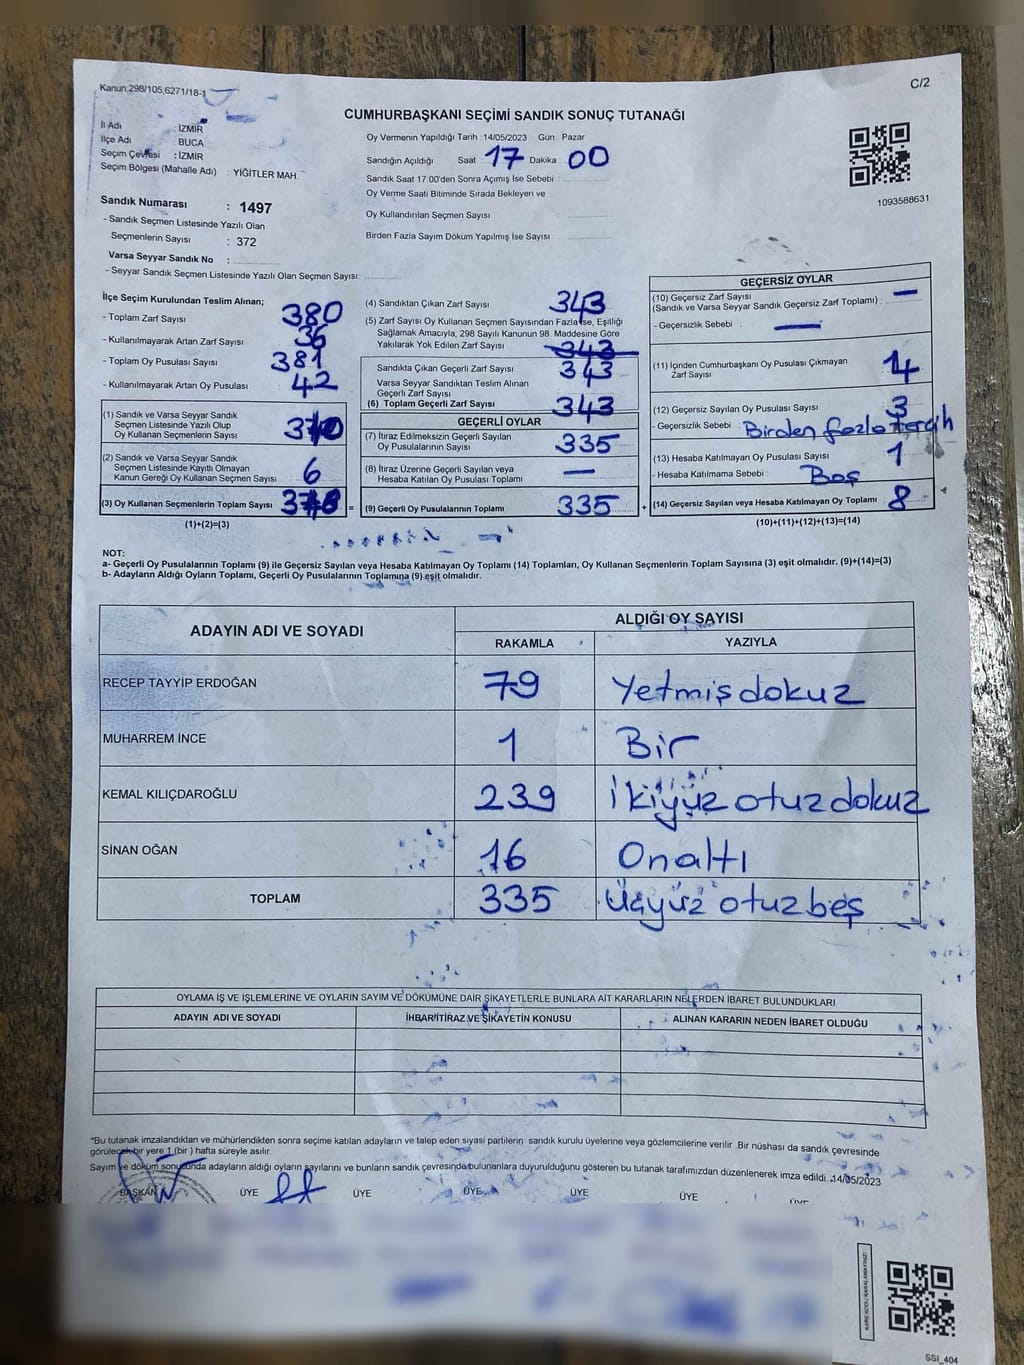 Kanun:298/105,6271/18-1
C/2
CUMHURBAŞKANI SEÇİMİ SANDIK SONUÇ TUTANAĞI
İl Adı : İZMİR
İlçe Adı BUCA
Seçim Çevresi : İZMİR
Seçim Bölgesi (Mahalle Adı) : YİĞİTLER MAH.
Oy Vermenin Yapıldığı Tarih 14/05/2023 Gün : Pazar
Sandığın Açıldığı Saat 17 Dakika 00
Sandık Saat 17.00'den Sonra Açımış İse Sebebi
Oy Verme Saati Bitiminde Sırada Bekleyen ve
Oy Kullandırılan Seçmen Sayısı :
Birden Fazla Sayım Döküm Yapılmış İse Sayısı :
1093588631
Sandık Numarası : 1497
- Sandık Seçmen Listesinde Yazılı Olan
Seçmenlerin Sayısı : 372
Varsa Seyyar Sandık No :
- Seyyar Sandık Seçmen Listesinde Yazılı Olan Seçmen Sayısı:
İlçe Seçim Kurulundan Teslim Alınan;
- Toplam Zarf Sayısı 380
- Kullanılmayarak Artan Zarf Sayısı 36
- Toplam Oy Pusulası Sayısı 381
- Kullanılmayarak Artan Oy Pusulası 42
(1) Sandık ve Varsa Seyyar Sandık
Seçmen Listesinde Yazılı Olup
Oy Kullanan Seçmenlerin Sayısı
(2) Sandık ve Varsa Seyyar Sandık
Seçmen Listesinde Kayıtlı Olmayan
Kanun Gereği Oy Kullanan Seçmen Sayısı 6
(3) Oy Kullanan Seçmenlerin Toplam Sayısı
(1)+(2)=(3)
(4) Sandıktan Çıkan Zarf Sayısı 343
(5) Zarf Sayısı Oy Kullanan Seçmen Sayısından Fazla İse, Eşitliği
Sağlamak Amacıyla, 298 Sayılı Kanunun 98. Maddesine Göre
Yakılarak Yok Edilen Zarf Sayısı 343
Sandıkta Çıkan Geçerli Zarf Sayısı 343
Varsa Seyyar Sandıktan Teslim Alınan
Geçerli Zarf Sayısı
(6) Toplam Geçerli Zarf Sayısı 343
GEÇERLİ OYLAR
(7) İtiraz Edilmeksizin Geçerli Sayılan
Oy Pusulalarının Sayısı 335
(8) İtiraz Üzerine Geçerli Sayılan veya
Hesaba Katılan Oy Pusulası Toplamı —
= (9) Geçerli Oy Pusulalarının Toplamı 335 +
GEÇERSİZ OYLAR
(10) Geçersiz Zarf Sayısı
(Sandık ve Varsa Seyyar Sandık Geçersiz Zarf Toplamı) : —
- Geçersizlik Sebebi : —
(11) İçinden Cumhurbaşkanı Oy Pusulası Çıkmayan
Zarf Sayısı 4
(12) Geçersiz Sayılan Oy Pusulası Sayısı 3
- Geçersizlik Sebebi : Birden fazla tercih
(13) Hesaba Katılmayan Oy Pusulası Sayısı 1
- Hesaba Katılmama Sebebi : Boş
(14) Geçersiz Sayılan veya Hesaba Katılmayan Oy Toplamı 8
(10)+(11)+(12)+(13)=(14)
NOT:
a- Geçerli Oy Pusulalarının Toplamı (9) ile Geçersiz Sayılan veya Hesaba Katılmayan Oy Toplamı (14) Toplamları, Oy Kullanan Seçmenlerin Toplam Sayısına (3) eşit olmalıdır. (9)+(14)=(3)
b- Adayların Aldığı Oyların Toplamı, Geçerli Oy Pusulalarının Toplamına (9) eşit olmalıdır.
ADAYIN ADI VE SOYADI ALDIĞI OY SAYISI
RAKAMLA YAZIYLA
RECEP TAYYİP ERDOĞAN 79 Yetmişdokuz
MUHARREM İNCE 1 Bir
KEMAL KILIÇDAROĞLU 239 İkiyüz otuzdokuz
SİNAN OĞAN 16 Onaltı
TOPLAM 335 Üçyüz otuzbeş
OYLAMA İŞ VE İŞLEMLERİNE VE OYLARIN SAYIM VE DÖKÜMÜNE DAİR ŞİKAYETLERLE BUNLARA AİT KARARLARIN NELERDEN İBARET BULUNDUKLARI
ADAYIN ADI VE SOYADI İHBAR/İTİRAZ VE ŞİKAYETİN KONUSU ALINAN KARARIN NEDEN İBARET OLDUĞU
*Bu tutanak imzalandıktan ve mühürlendikten sonra seçime katılan adayların ve talep eden siyasi partilerin sandık kurulu üyelerine veya gözlemcilerine verilir. Bir nüshası da sandık çevresinde
görülecek bir yere 1 (bir) hafta süreyle asılır.
Sayım ve döküm sonucunda adayların aldığı oyların sayılarını ve bunların sandık çevresinde bulunanlara duyurulduğunu gösteren bu tutanak tarafımızdan düzenlenerek imza edildi. 14/05/2023
BAŞKAN ÜYE ÜYE ÜYE ÜYE ÜYE ÜYE
KARE KODU KARALAMAYINIZ!
SSI_404